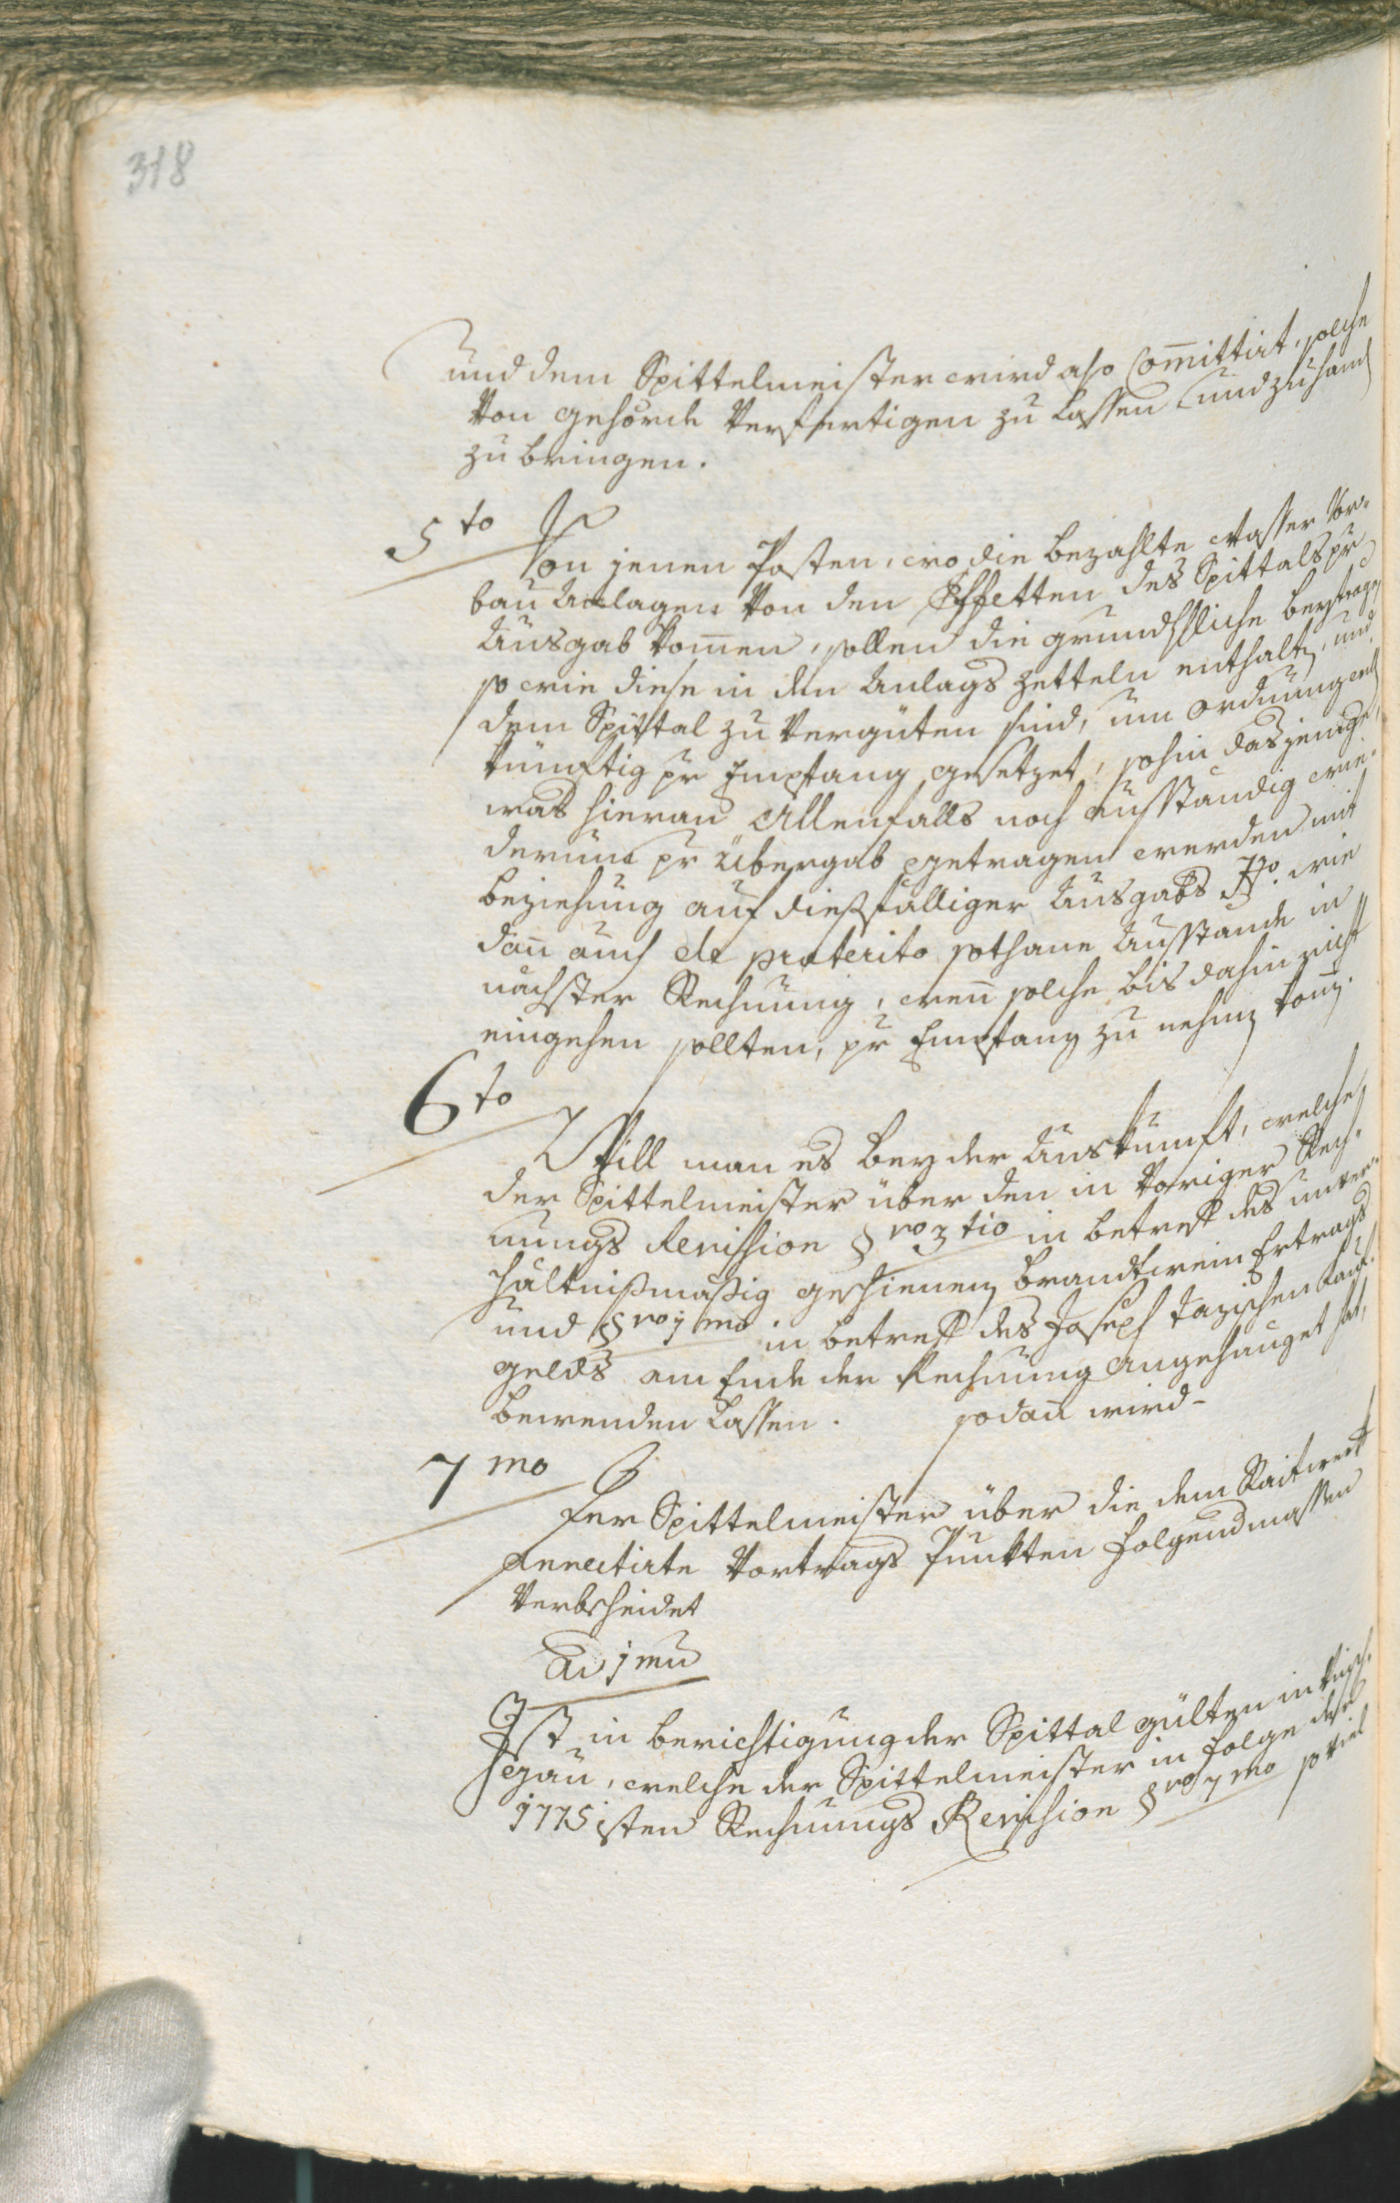 318
und dem Spittelmeister wird also Com̄ittirt, solche
von gehörde verfertigen zu lassen und zuhand
zu bringen.
5to
Von jenen Posten, wo die bezahlte Wasser Vor-
bau Anlagen von den Effetten des Spittals pr
Ausgab kom̄en, sollen die grundhliche beyträge
so wie diese in den Anlags zetteln enthalten, und
dem Spittal zu verguten sind, um ordnung
künftig pr Empfang gesetzet, sohin dasjenige
was hieran Allenfalls noch ausständig wie-
derum pr Übergab getragen werden mit
beziehung auf diesfälliger Ausgabs No. wie
dan̄ auch de praterito sothane Ausstände in
nächster Rechnung, wen̄ solche bis dahin nicht
eingehen sollten, pr Empfang zu nehmen kom̄.
6to
Will man es bey der Auskunft, welche
der Spittelmeister über den in voriger Rech-
nungs Revission §ro 3tio in betreff des unver-
hältnißmäßig geschienenen brandtwein Ertrags
und §ro jmo in betreff des Joseph Tazischen Kauf-
gelds am Ende der Rechnung angehänget hat,
bewenden lassen. sodan̄ wird-
7mo
Der Spittelmeister über die dem Raitwerk
Annectirte Vortrags Punkten Folgendmassen
Verbscheidet
Ad jmu
Ist in berichtigung der Spittal gülten in Vinsch-
gau, welche der Spittelmeister in Folge der
1775isten Rechnungs Revission §ro 7mo so viel